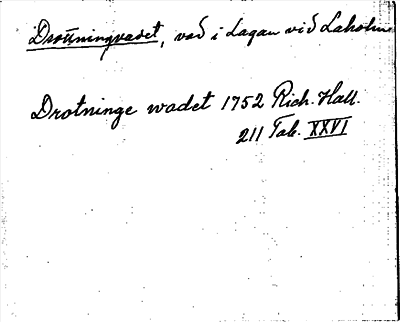 Drottningvadet, vad i Lagan vid Laholm
Drotninge wadet 1752 Rich. Hall.
211 Tab. XXVI